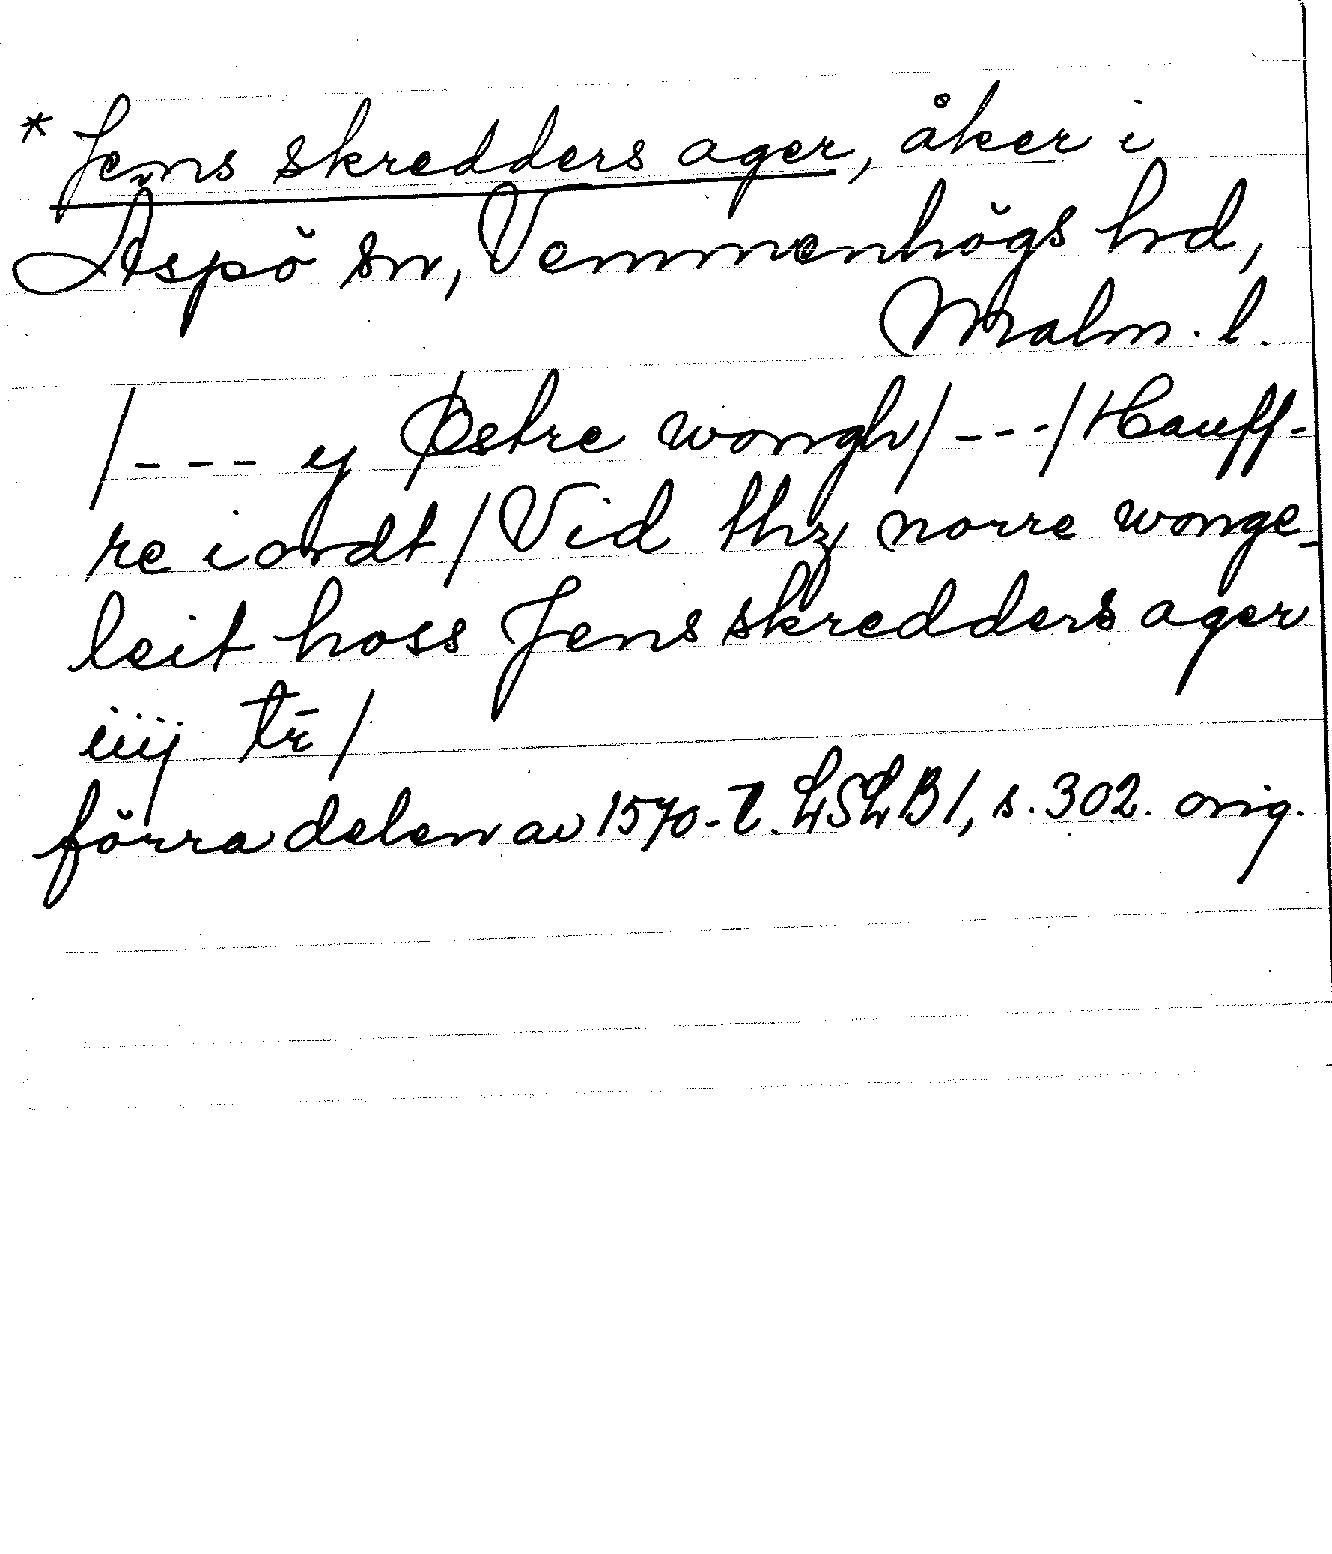 * Jens skredders ager, åker i
Äspö sn, Vemmenhögs hd,
Malm. l.
/--- y Østre wongh/---/Hauff-
re iordt/Vid thz norre wonge-
leit hoss Jens skredders ager
iiij tr̄/
förra delen av 1570-t. LSLB1, s. 302. orig.